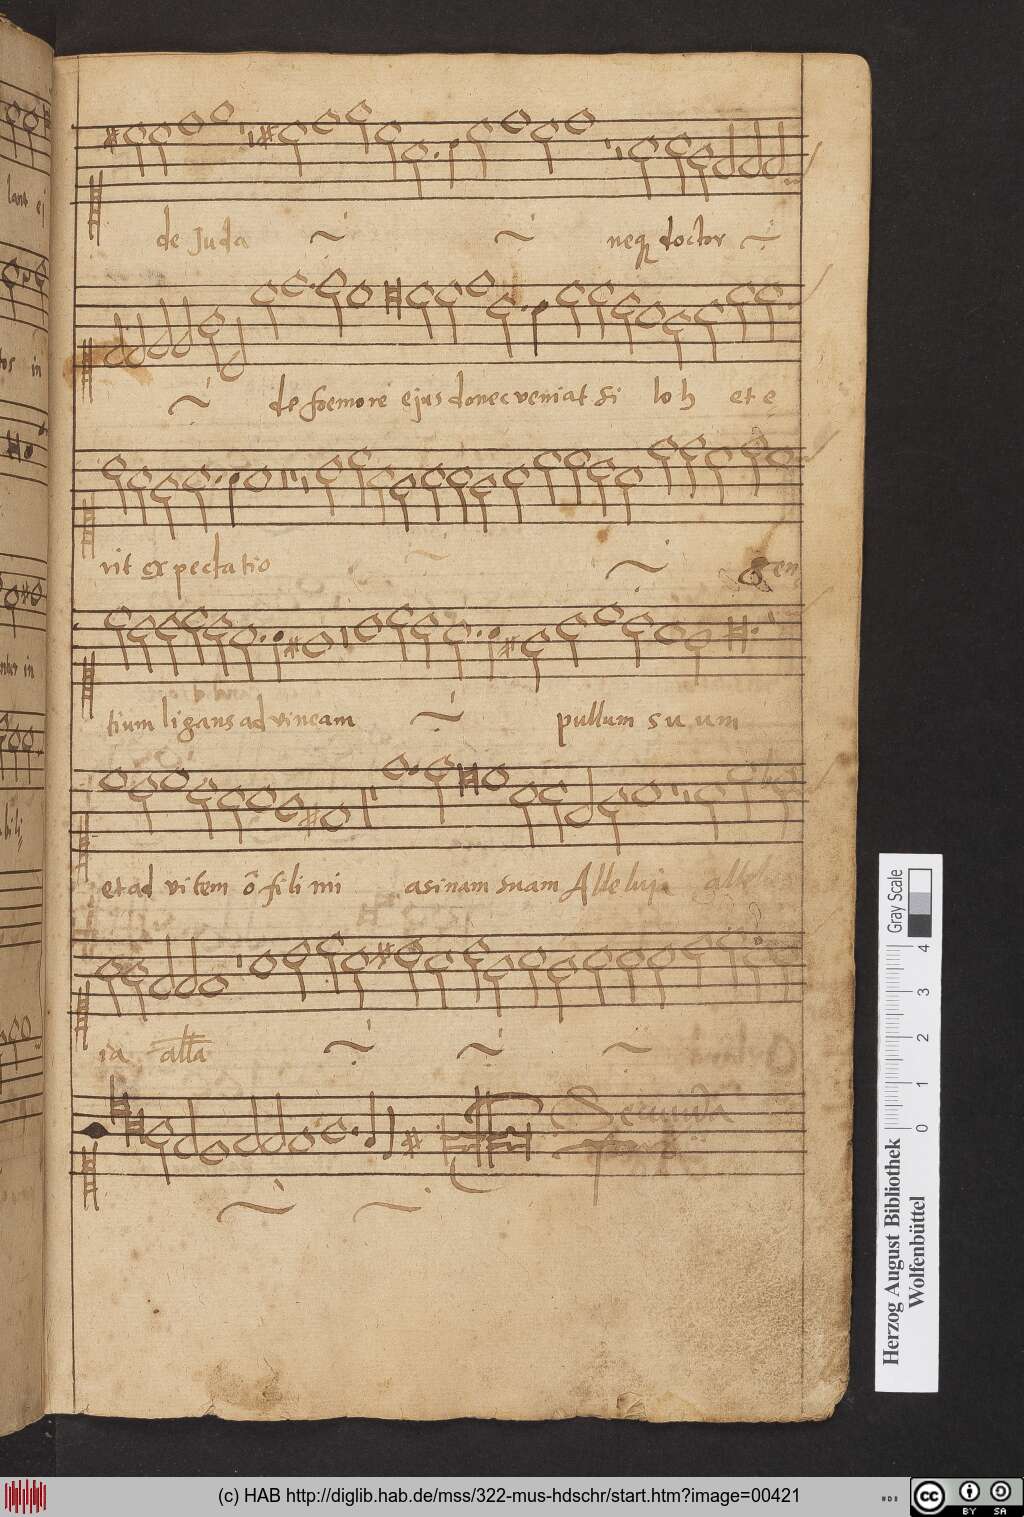 de Juda neq doctor
de foemore ejus donec veniat si loh et e
rit expectatio gen
tium ligans ad vineam pullum suum
et ad vitem ô fili mi asinam suam Alleluja alle
ia alla
Secunda
lana ej
tos in
in
Gray Scale
0 1 2 3 4
Herzog August Bibliothek
Wolfenbüttel
(c) HAB http://diglib.hab.de/mss/322-mus-hdschr/start.htm?image=00421
cc BY SA